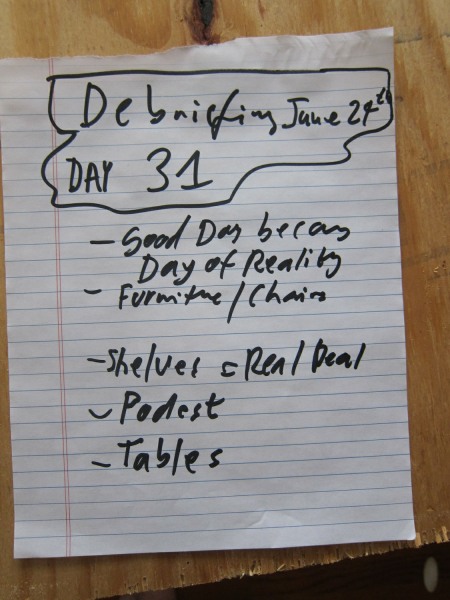 Debriefing June 24th
DAY 31
- Good Day becaus
Day of Reality
- Furniture/Chairs
- Shelves = Real Deal
- Podest
- Tables